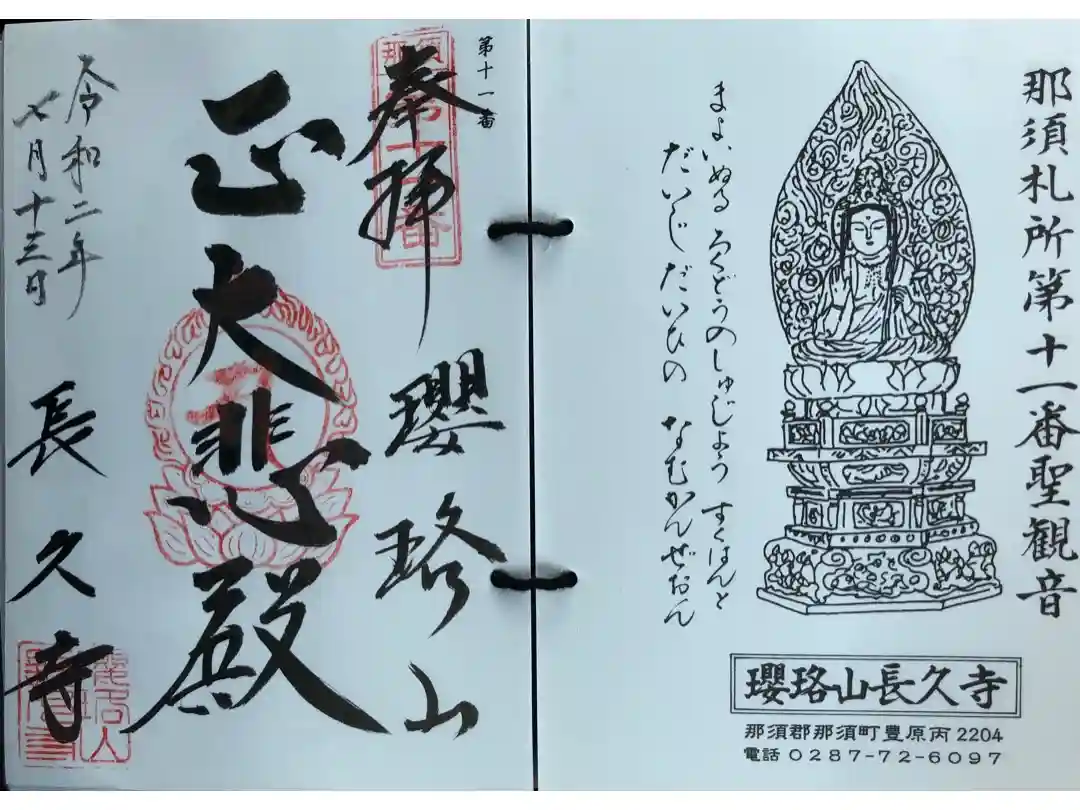 那須札所第十一番聖観音
まよいぬる ろくどうのしゅじょう すくはんと
だいじだいひの なむかんぜおん
瓔珞山長久寺
那須郡那須町豊原丙2204
電話0287-72-6097
第十一番
那須
第十一番
奉拝 瓔珞山
大悲殿
令和二年
七月十三日
長久寺